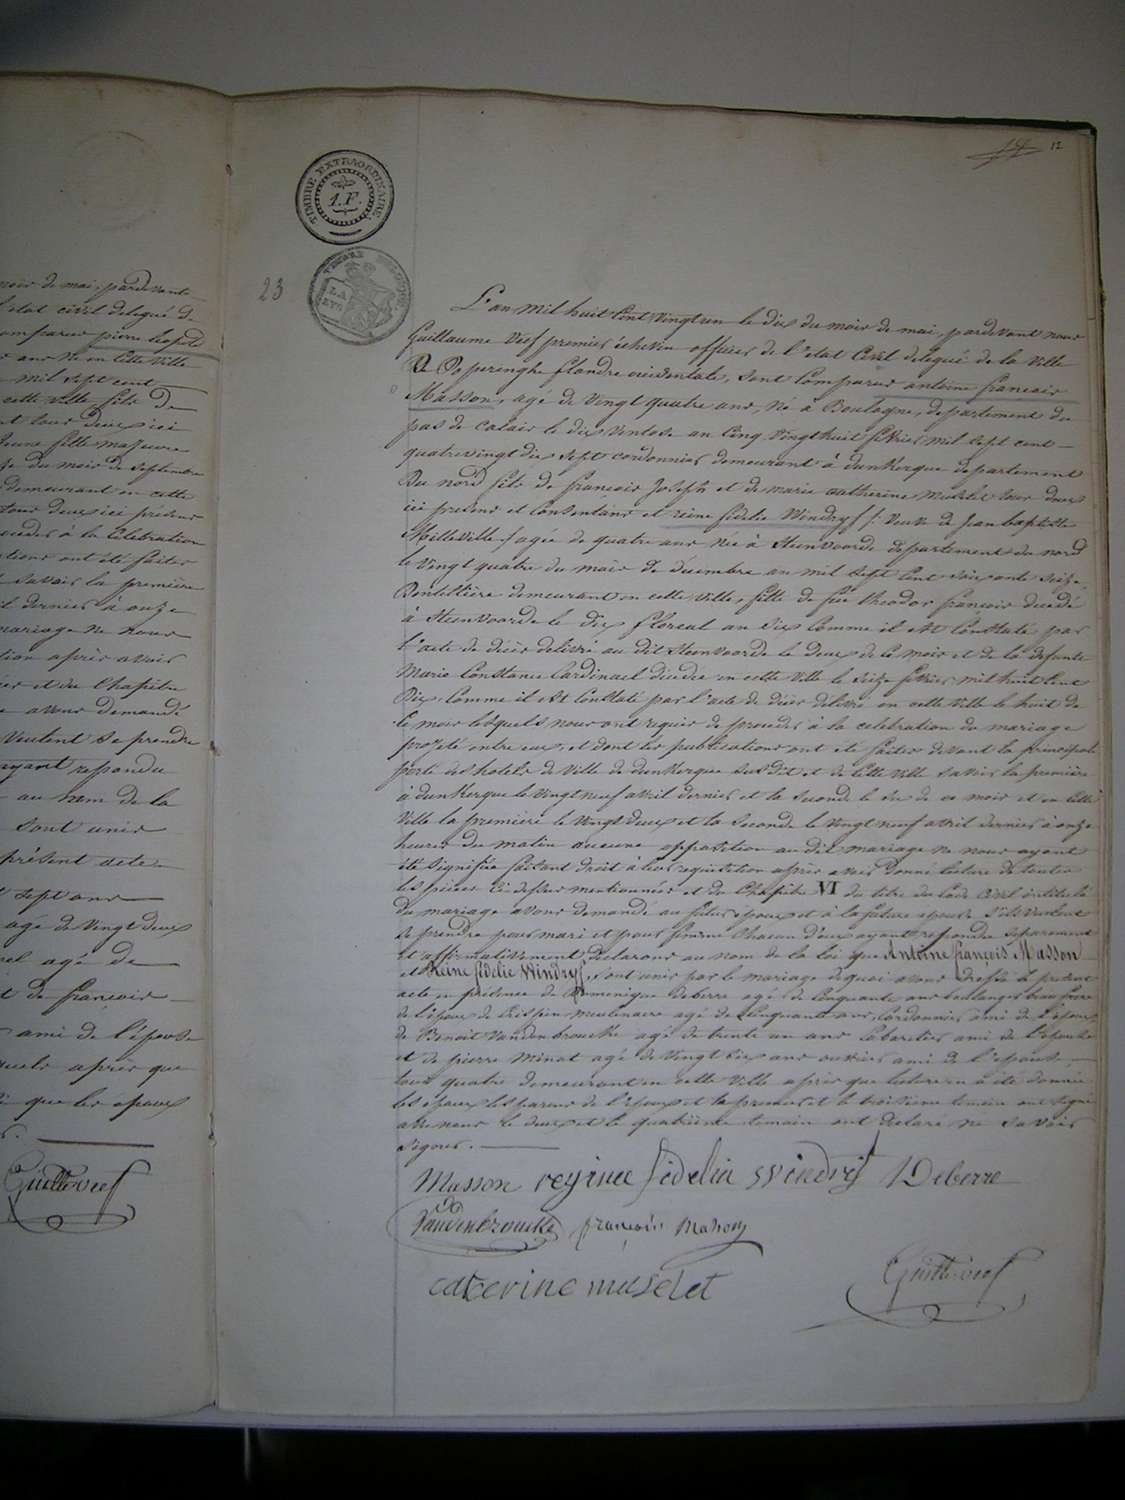 noir de mai, pardevant
l'état civil delegué de
comparu pierre leopold
ans né en cette Ville
mil sept cent
cette ville fils de
tous deux ici
jeune fille majeure
du mois de Septembre
demeurant en cette
tous deux ici présens
proceder à la Celebration
ont été faites
savoir la première
dernier à onze
mariage ne nous
après avoir
et du Chapitre
avons demandé
Veulent se prendre
ayant repondu
au nom de la
sont unis
présent acte
sept ans
agé de Vingt deux
agé de
de françois
ami de l'épouse
après que
que les epoux
Guill. Veef
TIMBRE EXTRAORDINAIRE
1.F.
LA
LYS
23
12
L'an mil huit Cent Vingt un le dix du mois de mai, pardevant nous
Guillaume Veef premier échevin officier de l'état Civil delegué de la Ville
de Poperinghe flandre occidentale, sont Comparus antoine francois
Masson, agé de Vingt quatre ans, né à Boulogne, departement du
pas de Calais le dix Ventose an Cinq Vingt huit fevrier mil sept cent
quatrevingt dix sept cordonnier demeurant à dunkerque departement
du nord fils de françois Joseph et de marie catherine Muselet tous deux
ici present et Consentans et reine fidelie Windryf /: Veuve de Jean baptiste
Milleville / agée de quatre ans née à Steenvoorde departement du nord
le Vingt quatre du mois de decembre an mil Sept Cent Soixante Seize
demeurant en cette Ville, fille de feu theodor françois decedé
à Steenvoorde le dix floreal an dix Comme il est Constaté par
l'acte de décès delivré au dit Steenvoorde le deux de ce mois et de la defunte
Marie Constance Cardinael decedée en cette Ville le Seize fevrier mil huit Cent
dix, Comme il est Constaté par l'acte de décès délivré en cette Ville le huit de
ce mois lesquels nous ont requis de proceder à la celebration du mariage
projeté entre eux, et dont les publications ont été faites devant la principale
porte des hotels de Ville de dunkerque susdit et de Cette Ville savoir la première
à dunkerque le Vingt neuf avril dernier et la Seconde le Six de ce mois et en Cette
Ville la première le Vingt deux et la Seconde le Vingt neuf avril dernier à onze
heures du matin aucune opposition au dit mariage ne nous ayant
été signifiée faisant droit à leur requisition après avoir donné lecture de toutes
les pieces ci dessus mentionnées et du Chapitre VI du titre du Code Civil intitulé
du mariage avons demandé au futur epoux et à la future epouse s'ils Veulent
se prendre pour mari et pour femme Chacun d'eux ayant repondu separement
et affirmativement Declarons au nom de la loi que Antoine françois Masson
et Reine fidelie Windryf, Sont unis par le mariage de quoi avons dressé le présent
acte en présence de Dominique deberre agé de Cinquante ans boulanger beau frere
de l'épouse de Crispin meulenaire agé de Cinquante ans, Cordonnier ami de l'épouse
de Benoit Vandenbroucke agé de trente un ans Cabaretier ami de l'épouse
et de pierre Minat agé de Vingt Six ans ouvrier ami de l'épouse,
tous quatre demeurant en cette Ville après que lecture en a été donnée
les époux les parens de l'époux et le premier et le troisieme temoin ont signé
avec nous le deux et le quatrième temoin ont Déclaré ne Savoir
Signer.
Masson reginee fidelia Windrif D Deberre
Vandenbroucke françois Masson
caterine muselet
Guill. Veef